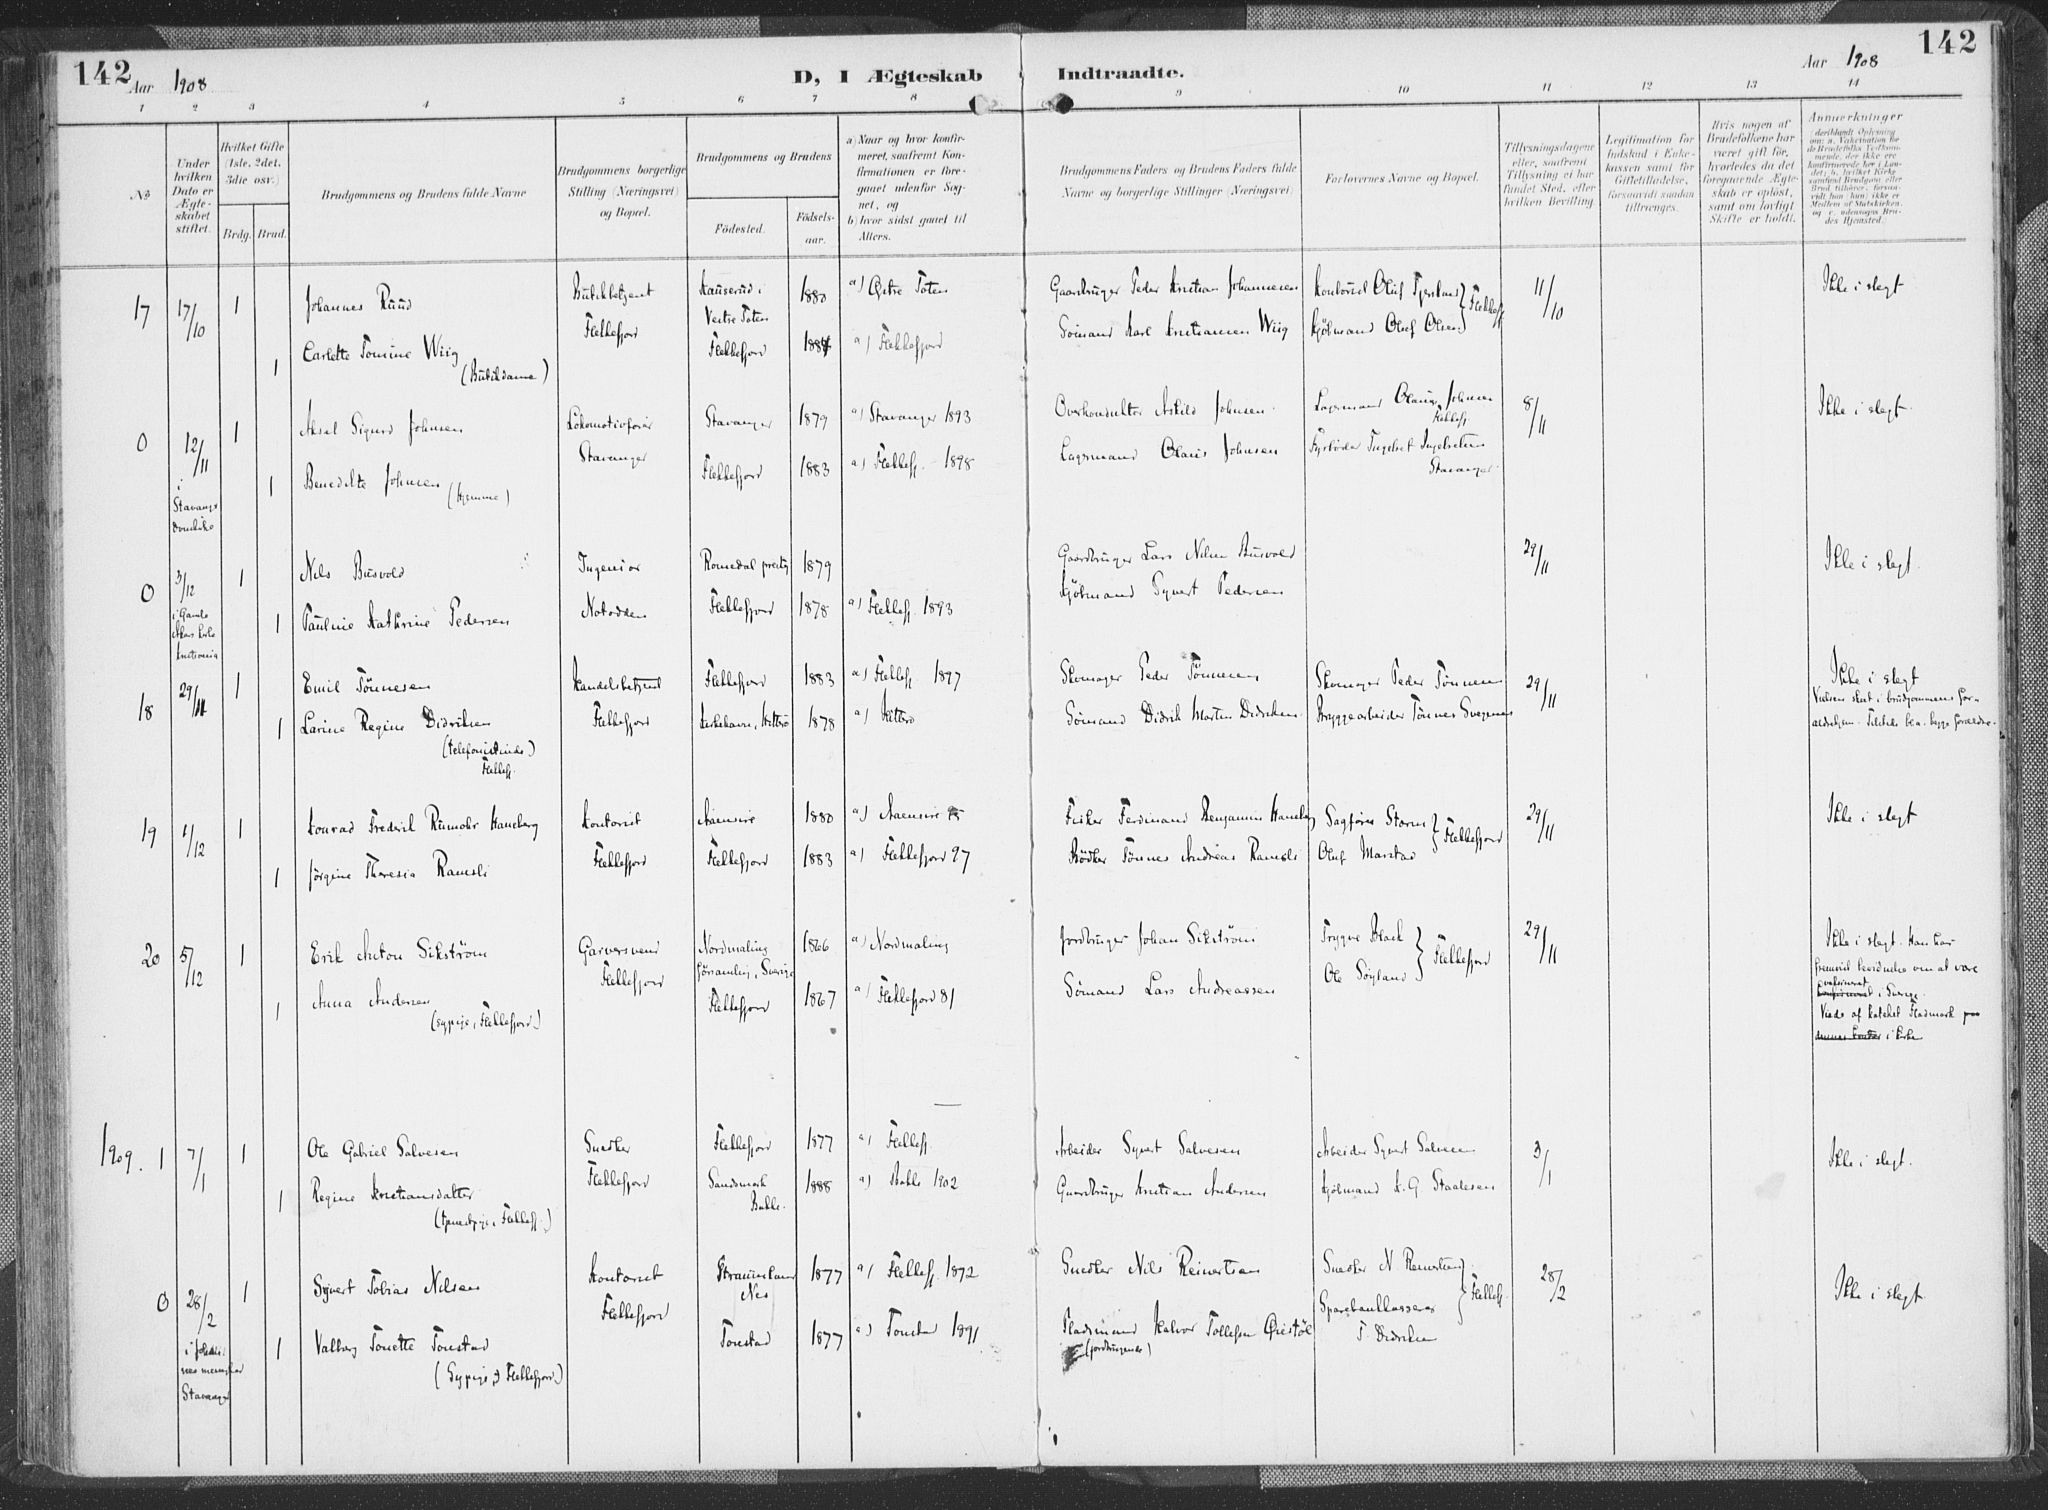 142 Aar 1908
D, I Ægteskab Indtraadte.
Aar 1908 142
1 2 3 4 5 6 7 8 9 10 11 12 13 14
No
Under hvilken Dato er Ægteskabet stiftet.
Hvilket Gifte (1ste, 2det, 3die osv.)
Brdg. Brud.
Brudgommens og Brudens fulde Navne
Brudgommens borgerlige Stilling (Næringsvei) og Bopæl.
Brudgommens og Brudens
Fødested.
Fødsels-aar.
a) Naar og hvor konfirmeret, saafremt Konfirmationen er foregaaet udenfor Sognet, og
b) hvor sidst gaaet til Alters.
Brudgommens Faders og Brudens Faders fulde Navne og borgerlige Stillinger (Næringsvei)
Forlovernes Navne og Bopæl.
Tillysningsdagene eller, saafremt Tillysning ei har fundet Sted, efter hvilken Bevilling.
Legitimation for Indskud i Enkekassen samt for Giftetilladelse, forsaavidt saadan tiltrænges.
Hvis nogen af Brudefolkene har været gift før, hvorledes da det foregaaende Ægteskab er opløst, samt om lovligt Skifte er holdt.
Anmerkninger
17 17/10 1 Johannes Ruud Butikbetjent Kauserud i Vestre Toten 1880 a) Østre Toten Gaardbruger Peder Kristian Johannesen Kontorist Oluf Tjersland 11/10 Ikke i slegt
Flekkefjord
1 Carlotte Tomine Wiig (Butikdame) Flekkefjord 1884 a) Flekkefjord Sømand Karl Kristiansen Wiig Kjøbmand Oluf Olsen Flekkefj
0 12/11 1 Aksel Sigurd Johnsen Lokomotivfører Stavanger 1879 a) Stavanger 1893 Overkonduktør Askild Johnsen Lagermand Olaus Johnsen Flekkefj 8/11 Ikke i slegt.
i Stavanger domkirke
1 Benedikte Johnsen (Hjemme) Stavanger Flekkefjord 1883 a) Flekkefj. 1898 Lagermand Olaus Johnsen Fyrbøder Ingebret Ingebretsen Stavanger
0 3/12 1 Nils Busvold Ingeniør Romedal prestg 1879 Gaardbruger Lars Nilsen Busvold 29/11 Ikke i slegt.
i Gamle Akers kirke Kristiania
1 Pauline Kathrine Pedersen Notodden Flekkefjord 1878 a) Flekkefj. 1893 Kjøbmand Syvert Pedersen
18 29/11 1 Emil Tönnesen Handelsbetjent Flekkefjord 1883 a) Flekkefj 1897 Skomager Peder Tönnesen Skomager Peder Tönnesen 29/11 Ikke i slegt
1 Larine Regine Didriksen (telefonistinde) Flekkefj. Flekkefjord Kirkehavn, Hitterø 1878 a) Hitterø Sømand Didrik Martin Didriksen Bryggearbeider Tönnes Svegnes
19 1/12 1 Konrad Fredrik Rumohr Haneberg Kontorist Aaensire 1880 a) Aaensire 95 Fisker Ferdinand Benjamin Haneberg Sagfører Storm 29/11 Ikke i slegt
1 Jörgine Theresia Ramsli Flekkefjord Flekkefjord 1883 a) Flekkefjord 97 Bödker Tönnes Andreas Ramsli Oluf Marstad Flekkefjord
20 5/12 1 Erik Anton Sikström Garversvend Nordmaling församling, Sverige 1866 a) Nordmaling Jordbruger Johan Sikström Trygve Black 29/11 Ikke i slegt.
1 Anna Andersen (sypige, Flekkefjord.) Flekkefjord Flekkefjord 1867 a) Flekkefjord 81 Sømand Lars Andreassen Ole Söyland Flekkefjord
1909. 1 7/1 1 Ole Gabriel Salvesen Snedker Flekkefjord 1877 a) Flekkefj Arbeider Syvert Salvesen Arbeider Syvert Salvesen 3/1 Ikke i slegt.
1 Regine Kristiansdatter (tjenestpige, Flekkefj.) Flekkefjord Sandsmark Bakke. 1888 a) Bakke 1902 Gaardbruger Kristian Andersen Kjøbmand K. G Staalesen
0 28/2 1 Syvert Tobias Nilsen Kontorist Straumland Nes 1877 a) Flekkefj. 1872 Snedker Nils Reinertsen Snedker N Reinertsen 28/2 Ikke i slegt.
Stavanger
1 Valborg Tonette Tonstad (Sypige, Flekkefjord.) Flekkefjord Tonstad 1877 a) Tonstad 1891 Pladsmand Halvor Tollefsen (jordbrugende) Sparebankkasserer T Didriksen Flekkefj.